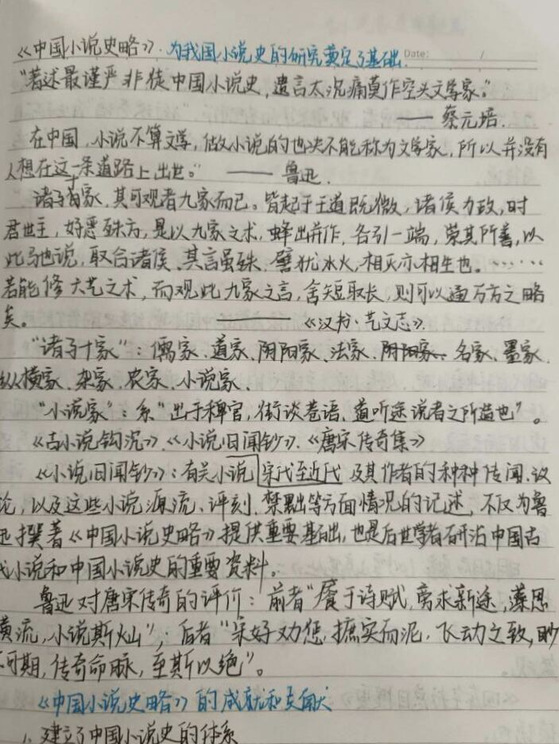 《中国小说史略》：为我国小说史的研究奠定了基础. Date: /
“著述最谨严 非徒中国小说史，遗言太沉痛莫作空头文学家。”
—— 蔡元培.
在中国，小说不算文学，做小说的也决不能称为文学家，所以并没有
人想在这一条道路上出世。” —— 鲁迅.
诸子十家，其可观者九家而已。皆起于王道既微，诸侯力政，时
君世主，好恶殊方，是以九家之术，蜂出并作，各引一端，崇其所善，以
此驰说，取合诸侯。其言虽殊，譬犹水火，相灭亦相生也。……
若能修六艺之术，而观此九家之言，舍短取长，则可以通万方之略
矣。 —— 《汉书·艺文志》.
“诸子十家”：儒家、道家、阴阳家、法家、阴阳家、名家、墨家、
纵横家、杂家、农家、小说家.
“小说家”：系“出于稗官，街谈巷语，道听途说者之所造也”。
《古小说钩沉》.《小说旧闻钞》.《唐宋传奇集》
《小说旧闻钞》：有关小说宋代至近代及其作者的种种传闻、议
论，以及这些小说源流、评刻、禁黜等方面情况的记述，不仅为鲁
迅撰著《中国小说史略》提供重要基础，也是后世学者研治中国古
代小说和中国小说史的重要资料。
鲁迅对唐宋传奇的评价：前者“餍于诗赋，旁求新途，藻思
横流，小说斯灿”；后者“宋好劝惩，摭实而泥，飞动之致，眇
不可期，传奇命脉，至斯以绝”。
《中国小说史略》的成就和贡献
1、建立了中国小说史的体系